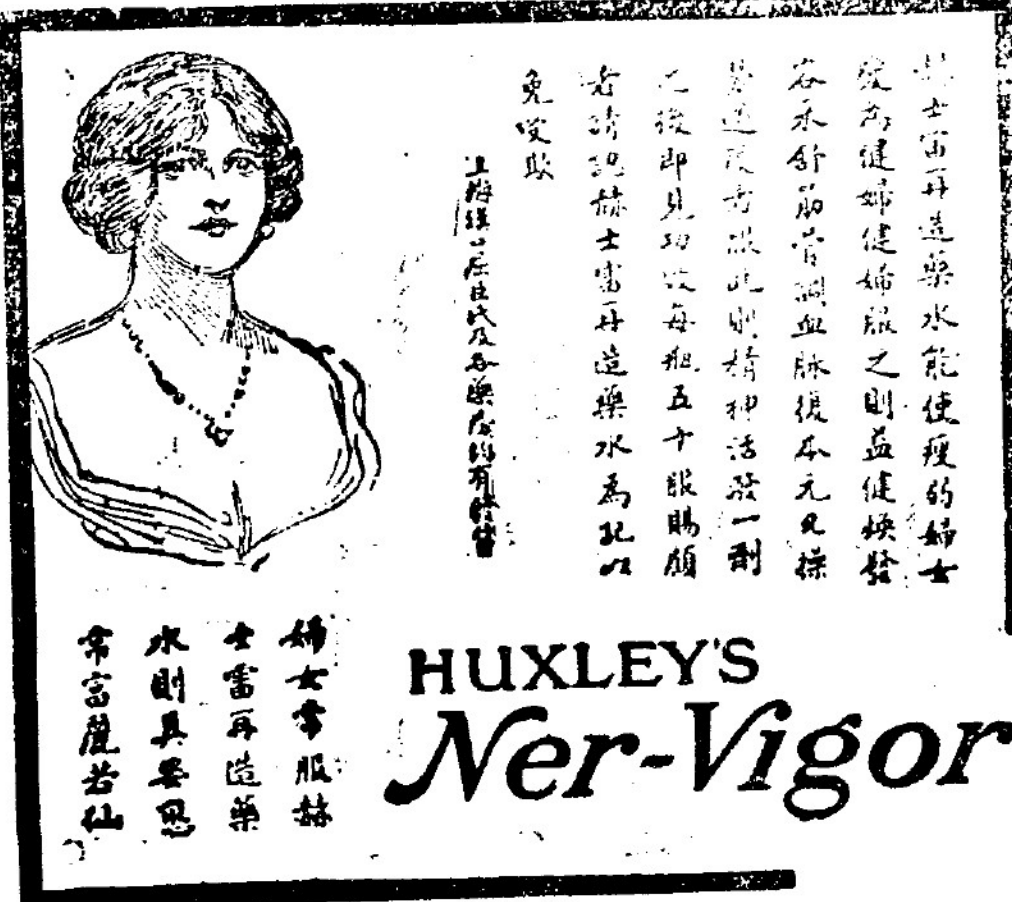 赫士雷再造藥水能使瘦的婦女
變為健婦健婦服之則益健煥發
容采舒筋骨調血脉復本元凡操
過度者服此則精神活潑一劑
之後即見功效每瓶五十服賜顧
者請認赫士雷再造藥水為記以
免受欺
上海漢口屈臣氏及各藥房均有發售
婦女常服赫
士雷再造藥
水則其姿
常富麗若仙
HUXLEY'S
Ner-Vigor